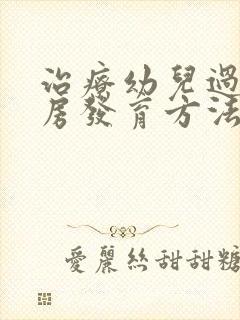 治療幼兒過
居發育方法
愛麗絲甜甜糖